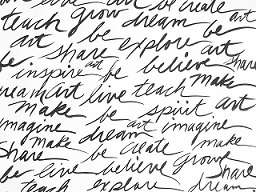 love art be create
teach grow dream art
art be explore be
be share believe art
inspire art be share
dream art live teach make
make be spirit art
imagine art imagine
make dream create make
share be believe grow
be live explore share
teach dream